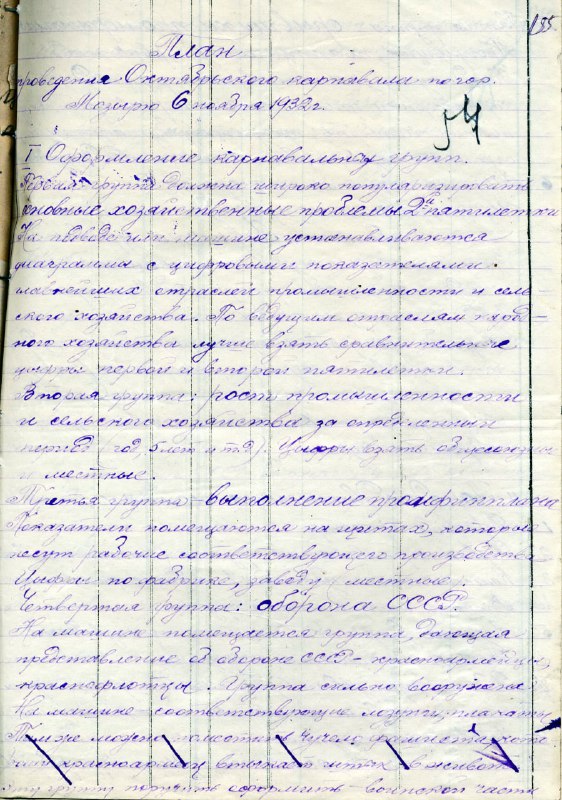 195
План
проведения Октябрьского карнавала по гор.
Мозырю 6 ноября 1932 г.
54
I Оформление карнавальных групп.
Первая группа должна широко популяризировать
основные хозяйственные проблемы 2й пятилетки
На подводе или машине устанавливаются
диаграммы с цифровыми показателями
главнейших отраслей промышленности и сель-
ского хозяйства. По ведущим отраслям народ-
ного хозяйства лучше взять сравнительные
цифры первой и второй пятилетки.
Вторая группа: рост промышленности
и сельского хозяйства за определенный
период (год, 5 лет и т.д). Цифры взять общесоюзные
и местные.
Третья группа - выполнение промфинплана
Показатели помещаются на щитах, которые
несут рабочие соответствующего производства
Цифры по фабрике, заводу (местные).
Четвертая группа: оборона СССР.
На машине помещается группа, дающая
представление об обороне СССР - красноармейцы,
краснофлотцы. Группа сильно вооружена
На машине соответствующие лозунги, плакаты
Там же можно поместить чучело фашиста, кото
рому красноармеец втыкает штык в живот
эту группу поручить оформить - воинской части